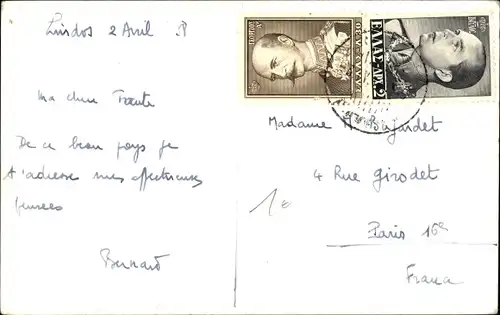 Lindos 2 Avril
Ma chère Tante
De ce beau pays je
t'adresse mes affectueuses
pensées
Bernard
ΕΛΛΑΣ-ΔΡ. 2
Madame
4 Rue Girodet
Paris 16e
France
1e